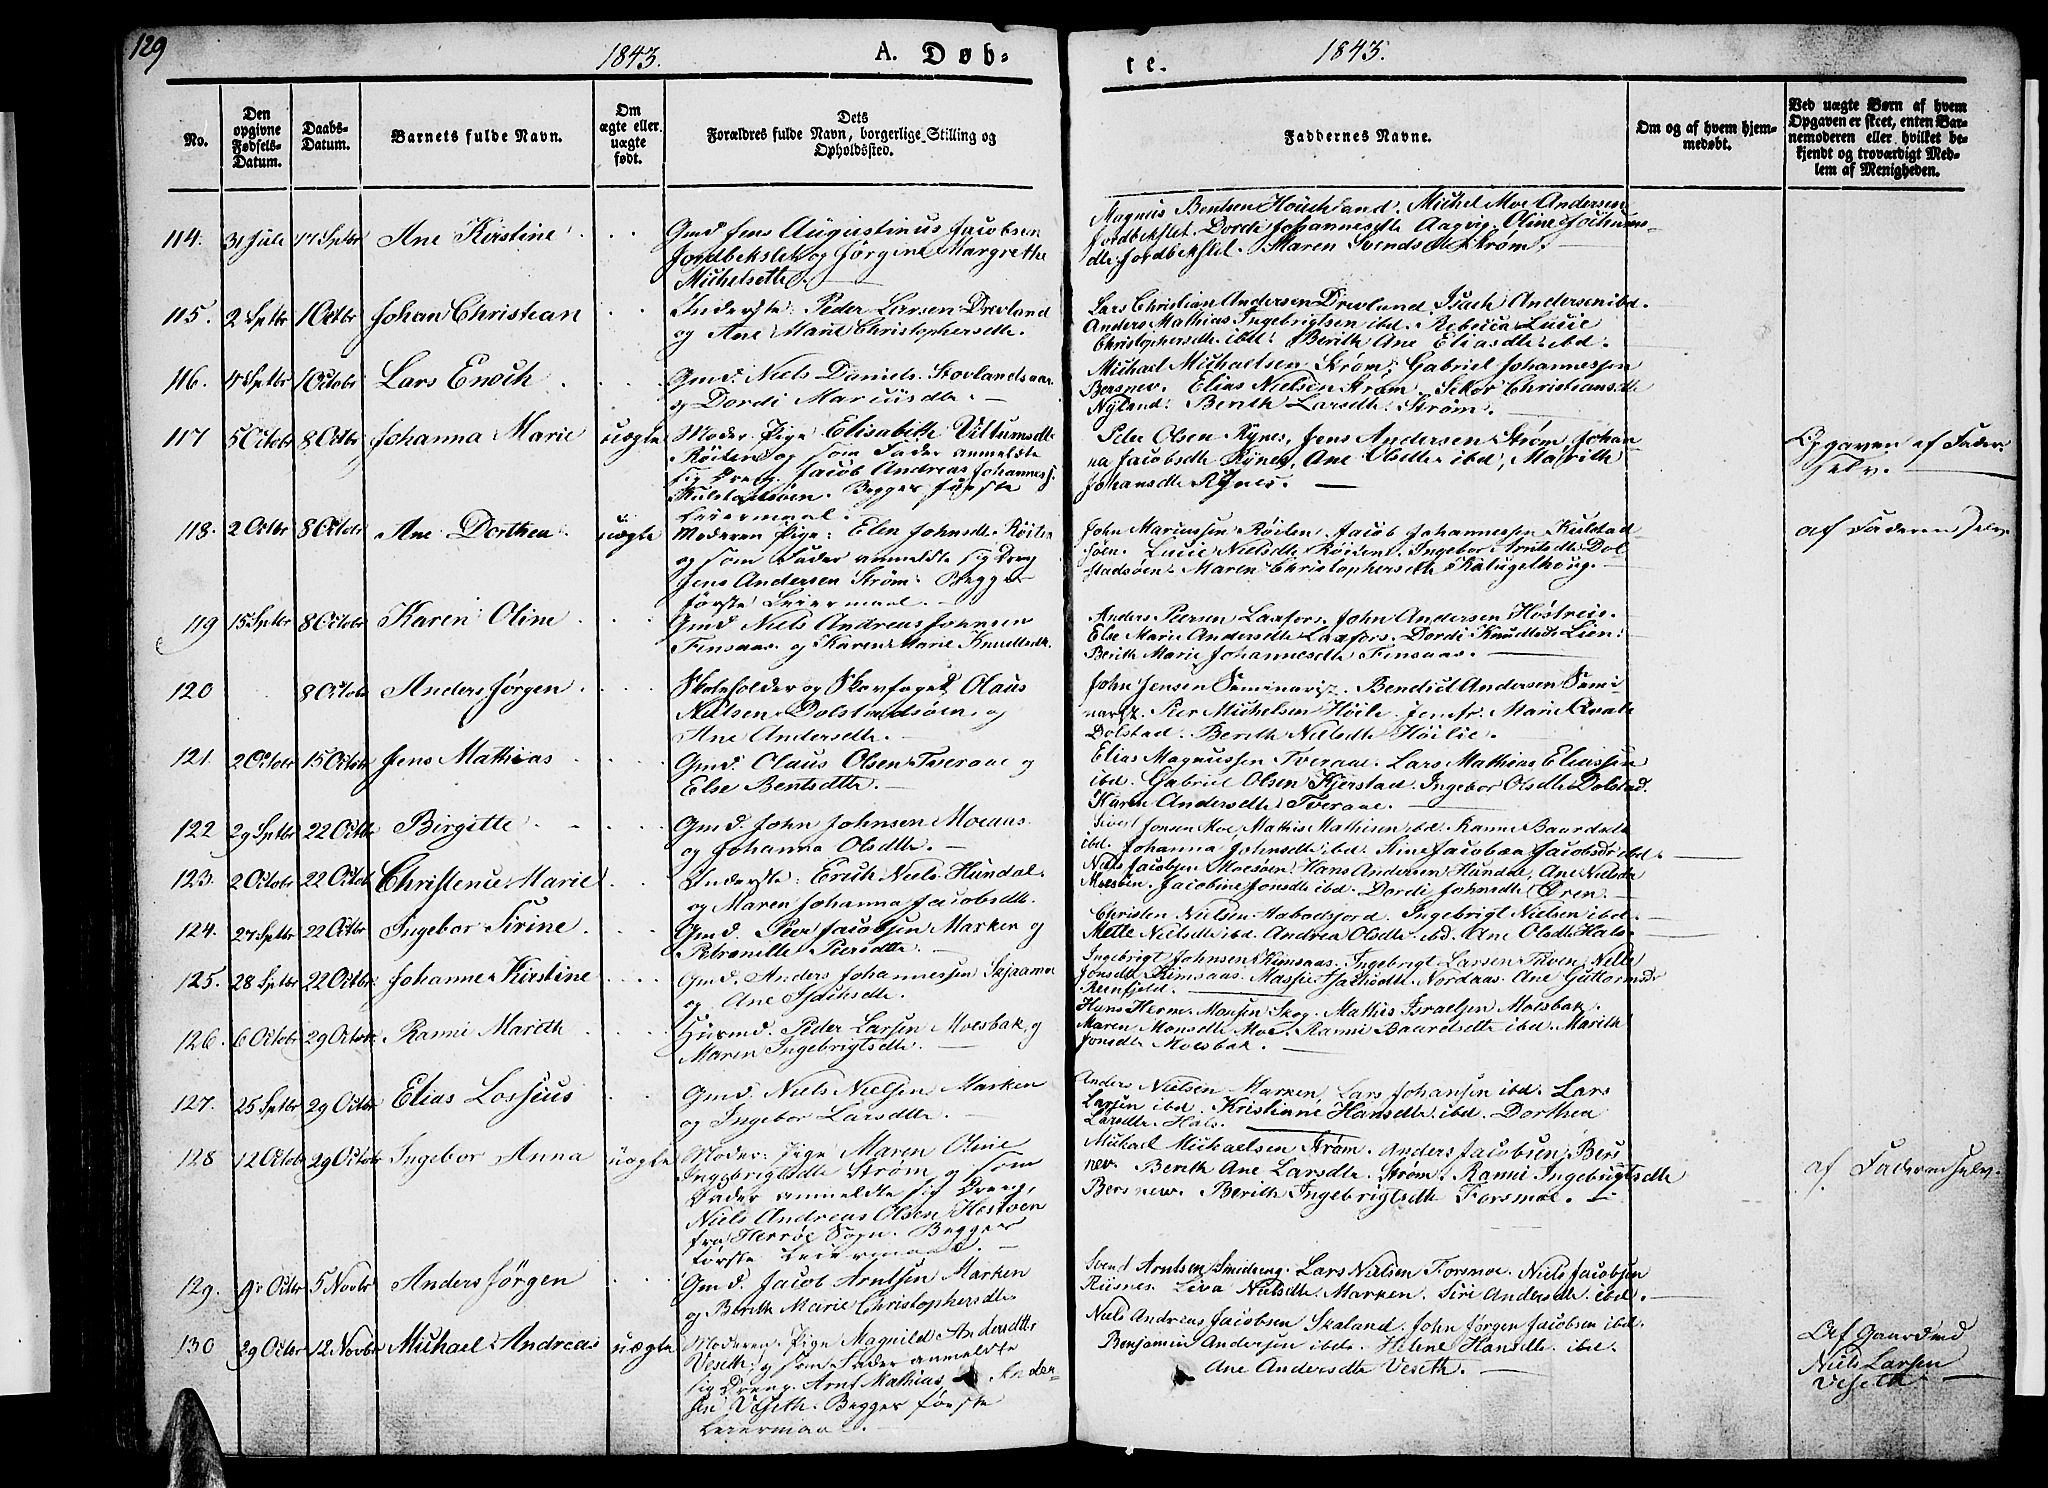 129
1843.
A. Døb-
te.
1843.
No.
Den opgivne Fødsels-Datum.
Daabs-Datum.
Barnets fulde Navn.
Om ægte eller uægte født.
Dets
Forældres fulde Navn, borgerlige Stilling og
Opholdssted.
Faddernes Navne.
Om og af hvem hjem-
medøbt.
Ved uægte Børn af hvem
Opgaven er skeet, enten Bar-
nemoderen eller hvilket be-
kjendt og troværdigt Med-
lem af Menigheden.
114. 31 Juli 17 Sptbr Ane Kirstine
Gmd Jens Augustinus Jacobsen
og Jørgine Margrethe
Michelsdtte.
Magnus Bentsen Andersen
Dordi Johannesdtte Aagvig. Oline
Maren Svendsdtr Strøm.
115. 2 Sptbr 1 Octbr Johan Christian
Inderste: Peder Larsen Drevland
og Ane Marit Christophersdtr.
Lars Christian Andersen Drevland, Isach Andersen ibd.
Anders Mathias Ingebrigtsen ibd. Rebecca Lucie
Christophersdtr ibd. Berith Ane Eliasdtr ibd.
116. 4 Sptbr 1 Octobr Lars Enoch
Gmd. Niels Daniels.
og Dordi Marcusdtr.
Michael Michaelsen Strøm, Gabriel Johannessen
Bersnev. Elias Nielsen Strøm. Christiansdtr
Nyland. Berith Larsdtr Strøm.
117 5 Octobr 8 Octbr Johanna Marie uægte
Moder: Pige Elisabeth
Røiten og som Fader anmeldte
sig Dreng. Jacob Andreas Johanness.
Kulstadsøen. Begges første
Leiermaal.
Peter Olsen Rynes, Jens Andersen Strøm, Johan
na Jacobsdtr Rynes, Ane Olsdtr ibd, Marith
Johansdtr Rynes.
Opgaven af Fader
selv.
118. 2 Octbr 8 Octobr Ane Dorthea uægte
Moderen Pige: Elen Johnsdtr Røiten
og som Fader anmeldte sig Dreng
Jens Andersen Strøm. Begges
første Leiermaal.
John Marcussen Røiten. Jacob Johannessen Kulstad-
søen. Lucie Nielsdtr Røiten. Ingebor Arntsdtr Dol-
stadsøen. Maren Christophersdtr
af Faderen selv.
119 15 Sptbr 8 Octobr Karen Oline
Gmd Niels Andreas Johnsen
Finsaas og Karen Marie Knudtsdtr.
Anders Peersen Laxfors. John Andersen
Else Marie Andersdtr Laxfors. Dordi Knudtsdtr Lien.
Berith Marie Johannesdtr Finsaas.
120 8 Octobr Anders Jørgen
Skoleholder og Skovfoged Olaus
Nielsen Dolstadsøen og
Ane Andersdtr.
John Jensen Seminarist. Bendict Andersen Semi-
narist. Peer Michelsen Høilie. Jomfr. Marie Qvale
Dolstad. Berith Nielsdtr Høilie.
121. 2 Octobr 15 Octobr Jens Mathias
Gmd. Olaus Olsen Tveraae og
Else Bentsdtr.
Elias Magnussen Tveraae. Lars Mathias Eliassen
ibd. Gabriel Olsen Kjerstad. Ingebor Olsdtr Dolstad.
Karen Andersdtr Tveraae.
122 29 Sptbr 22 Octbr Birgitte
Gmd. John Johnsen Moeaas
og Johanna Olsdtr.
Sivert Jonsen Moe, Mathis Mathisen ibd. Ranni Baardsdtr
ibd. Johanna Johnsdtr ibd. Jacobsdtr ibd.
123. 2 Octobr 22 Octobr Christence Marie
Inderste: Erich Niels. Hundal.
og Maren Johanna Jacobsdtr.
Niels Jacobsen Mosøen. Hans Andersen Hundal, Ane Nielsdtr
Mosøen. Jacobine Jonsdtr ibd. Dordi Johnsdtr Øren.
124. 27 Sptbr 22 Octbr Ingebor Sirine
Gmd. Peer Jacobsen Marken og
Petronille Piersdtr.
Christen Nielsen Ingebrigt Nielsen ibd.
Mette Nielsdtr ibd. Andrea Olsdtr ibd. Ane Olsdtr Hals.
125. 28 Sptbr 22 Octbr Johanne Kirstine
Gmd. Anders Johannessen
og Ane
Ingebrigt Johnsen Ingebrigt Larsen
Ane Guttormsdtr
126. 6 Octobr 29 Octobr Ranni Mareth
Huusmd. Peder Larsen Moesbak, og
Maren Ingebrigtsdtr.
Hans Monsen Skog. Mathis Israelsen Moesbak.
Maren Monsdtr Moe. Ranni Baardsdtr ibd. Marith
Jonsdtr Moesbak.
127. 25 Sptbr 29 Octbr Elias Lossius
Gmd. Niels Nielsen Marken
og Ingebor Larsdtr.
Anders Nielsen Marken, Lars Johansen ibd. Lars
Larsen ibd. Kristiane Hansdtr ibd. Dorthea
Larsdtr Hals.
128 12 Octobr 29 Octobr Ingebor Anna uægte
Moder: Pige Maren Oline
Ingebrigtsdtr Strøm og som
Fader anmeldte sig Dreng,
Niels Andreas Olsen
fra Herrøe Sogn. Begges
første Leiermaal.
Michael Michaelsen Strøm. Anders Jacobsen Bers
nev. Berith Ane Larsdtr Strøm. Ranni Ingebrigtsdtr
Bersnev. Berith Ingebrigtsdtr Forsmoe.
af Faderen selv.
129. 9 Octbr 5 Novbr Anders Jørgen
Gmd. Jacob Arntsen Marken
og Berith Marie Christophersdtr.
Svend Arntsen Lars Nielsen Forsmoe. Niels Jacobsen
Liva Nielsdtr Marken. Siri Andersdtr ibd.
130 29 Octbr 12 Novbr Michael Andreas uægte
Moderen: Pige Magnild Andersdtr
Veseth og som Fader anmeldte
sig Dreng. Arnt Mathias Ander-
sen Veseth. Begges første
Leiermaal.
Niels Andreas Jacobsen Skaland. John Jørgen Jacobsen ibd.
Benjamin Andersen ibd. Helene Hansdtr ibd.
Ane Andersdtr Veseth.
Af Gaardmd
Niels Larsen
Veseth.